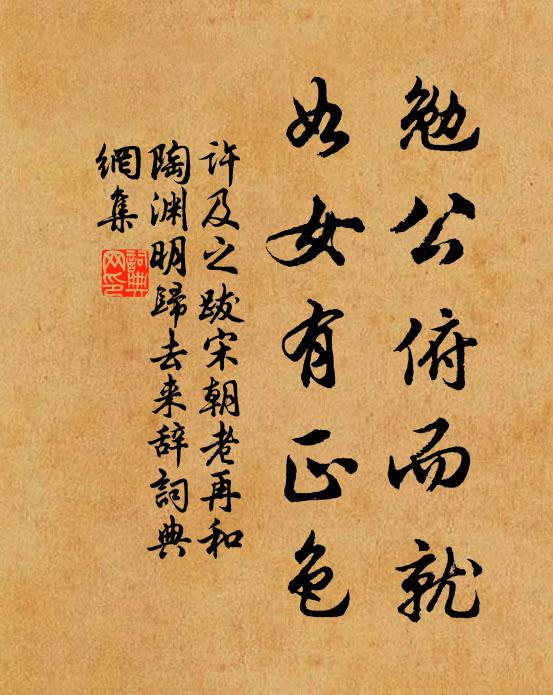 勉公俯而就
如女有正色
许及之跋宋朝老再和
陶渊明歸去来辞詞典
網集
詞典網印